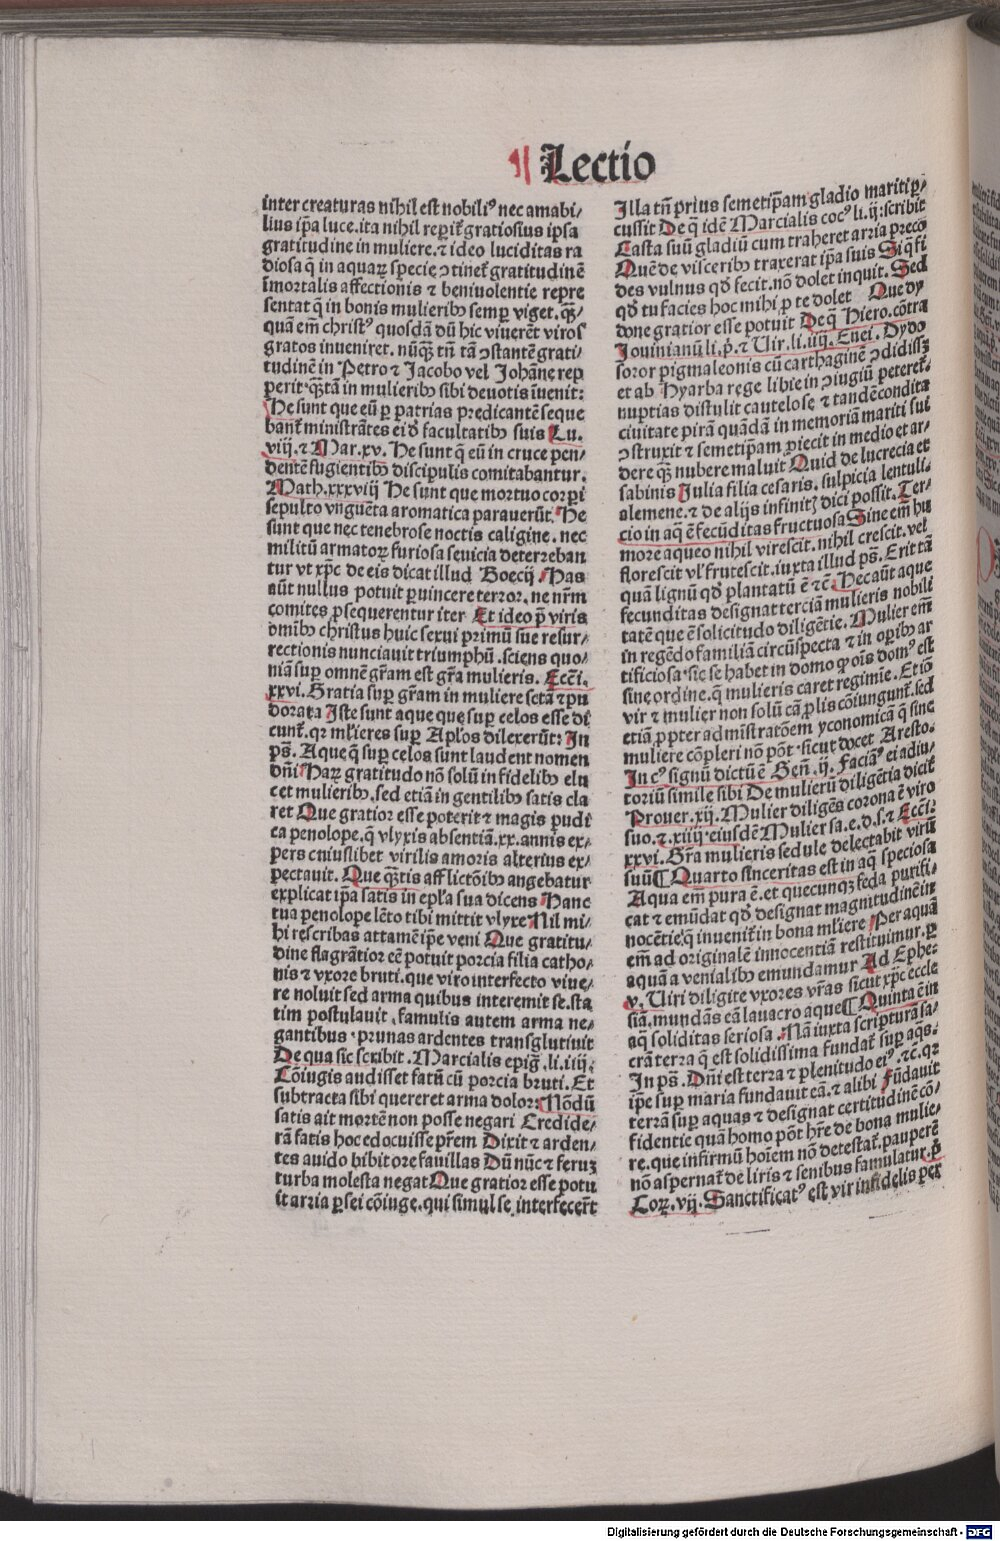 ¶ Lectio
inter creaturas nihil est nobiliꝰ nec amabi/
lius ip̄a luce. ita nihil reꝑit̄ gratiosius ipsa
gratitudine in muliere. ⁊ ideo luciditas ra
diosa q̄ in aquaꝝ specie ꝯtinet̄ gratitudinē
īmortalis affectionis ⁊ beniuolentie repre
sentat q̄ in bonis mulieribꝰ semꝑ viget. qꝙ̄/
quā em̄ christꝰ quosdā dū hic viuerēt viros
gratos inueniret. nūqꝙ̄ tn̄ tā ꝯstantē grati/
tudinē in Petro ⁊ Jacobo vel Johāne rep
perit. qꝙ̄tā in mulieribꝰ sibi deuotis īuenit:
He sunt que eū ꝑ patrias predicantē seque
bant̄ ministrātes ei d̄ facultatibꝰ suis Lu.
viij. ⁊ Mar. xv. He sunt q̄ eū in cruce pen/
dentē fugientibꝰ discipulis comitabantur.
Math. xxxviij He sunt que mortuo corpi
sepulto vnguēta aromatica parauerūt. He
sunt que nec tenebrose noctis caligine. nec
militū armatoꝝ furiosa seuicia deterreban
tur vt xp̄c de eis dicat illud Boecij Has
aūt nullus potuit ꝑuincere terror. ne nr̄m
comites ꝓsequerentur iter Et ideo p̄ viris
om̄ibꝰ christus huic sexui primū sue resur/
rectionis nunciauit triumphū. sciens quo/
niā suꝑ omnē gr̄am est gr̄a mulieris. Ecc̄i.
xxvi. Gratia suꝑ gr̄am in muliere sctā ⁊ pu
dorata Iste sunt aque que suꝑ celos esse di
cunt̄. qr ml̄ieres suꝑ Apl̄os dilexerūt: In
ps̄. Aque q̄ suꝑ celos sunt laudent nomen
dn̄i Haꝝ gratitudo nō solū in fidelibꝰ elu
cet mulieribꝰ. sed etiā in gentilibꝰ satis cla
ret Que gratior esse poterit ⁊ magis pudi
ca penolope. q̄ vlyxis absentiā. xx. annis ex/
pers cuiuslibet virilis amoris alterius ex/
pectauit. Que qꝙ̄tis afflictōibꝰ angebatur
explicat ip̄a satis in epl̄a sua dicens Hanc
tua penolope lēto tibi mittit vlyxe Nil mi/
hi rescribas attamē ip̄e veni Que gratitu/
dine flagrātior eē potuit porcia filia catho/
nis ⁊ vxore bruti. que viro interfecto viue/
re noluit sed arma quibus interemit se. sta
tim postulauit. famulis autem arma ne/
gantibus. prunas ardentes transglutiuit
De qua sic scribit. Marcialis epig̃. li. iiij.
Cōiugis audisset fatū cū porcia bruti. Et
subtracta sibi quereret arma dolor: Nōdū
satis ait mortē non posse negari Credide/
rā fatis hoc edocuisse pr̄em Dixit ⁊ arden/
tes auido bibit ore fauillas Dū nūc ⁊ feruꝫ
turba molesta negat Que gratior esse potu
it arria ꝑsei cōiuge. qui simul se interfecer̄t
Illa tn̄ prius semetip̄am gladio mariti ꝑ/
cussit De q̄ idē Marcialis cocꝰ li. ij: scribit
Casta suū gladiū cum traheret arria preco
Quē de visceribꝰ traxerat ip̄a suis Si q̄ fi
des vulnus qd̄ fecit. nō dolet inquit. Sed
qd̄ tu facies hoc mihi ꝑte dolet Que dy
done gratior esse potuit De q̄ Hiero. cōtra
Jouinianū li. p̄. ⁊ Uir. li. iiij. Enei. Dydo
soror pigmaleonis cū carthaginē ꝯdidissꝫ
et ab Hyarba rege libie in ꝯiugiū peteret̄.
nuptias distulit cautelose ⁊ tandē condita
ciuitate pirā quādā in memoriā mariti sui
ꝯstruxit ⁊ semetip̄am ꝓiecit in medio et ar/
dere qꝙ̄ nubere maluit Quid de lucrecia et
sabinis Julia filia cesaris. sulpicia lentuli.
alemene. ⁊ de alijs infinitꝭ dici possit. Ter/
cio in aq̄ ē fecūditas fructuosa Sine em̄ hu
more aqueo nihil virescit. nihil crescit. vel
florescit vl̄ frutescit. iuxta illud ps̄. Erit tā
quā lignū qd̄ plantatū ē ⁊c̄. Hec aūt aque
fecunditas designat terciā mulieris nobili
tatē que ē solicitudo diligētie. Mulier em̄
in regēdo familiā circūspecta ⁊ in oꝑibꝰ ar
tificiosa. sic se habet in domo qꝫ oīs domꝰ est
sine ordine. q̄ mulieris caret regimīe. Et iō
vir ⁊ mulier non solū cā ꝓlis cōiungunt̄. sed
etiā ꝓpter admīstratōem yconomicā q̄ sine
muliere cōpleri nō pōt. sicut docet Aresto.
In cꝰ signū dictū ē Gen̄. ij. Faciāꝰ ei adiu/
toriū simile sibi De mulierū diligētia dicit̄
Prouer. xij. Mulier diligēs corona ē viro
suo. ⁊. xiiij. eiusdē Mulier sa. e. d. s. ⁊ Ecc̄i:
xxvi. Gr̄a mulieris sedule delectabit virū
suū ¶ Quarto sinceritas est in aq̄ speciosa
Aqua em̄ pura ē. et quecunqꝫ feda purifi/
cat ⁊ emūdat qd̄ designat magnitudinē in
nocētie. q̄ inuenit̄ in bona ml̄iere Per aquā
em̄ ad originalē innocentiā restituimur. ꝑ
aquā a venialibꝰ emundamur Ad Ephe:
v. Uiri diligite vxores vr̄as sicut xp̄c eccle
siā. mundās eā lauacro aque ¶ Quinta ē in
aq̄ soliditas seriosa. Nā iuxta scripturā sa/
crā terra q̄ est solidissima fundat̄ suꝑ aq̄s.
In ps̄. Dn̄i est terra ⁊ plenitudo eiꝰ. ⁊c̄. qr
ip̄e suꝑ maria fundauit eā. ⁊ alibi Fūdauit
terrā suꝑ aquas ⁊ designat certitudinē cō/
fidentie quā homo pōt hr̄e de bona mulie/
re. que infirmū hoīem nō detestat̄. pauperē
nō aspernat̄ deliris ⁊ senibus famulatur. p̄
Coꝝ. vij. Sanctificatꝰ est vir infidelis per
Digitalisierung gefördert durch die Deutsche Forschungsgemeinschaft - DFG